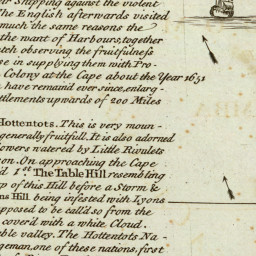 ir Shipping against the violent
The English afterwards visited
much the same reasons the
the want of Harbours, together
tch observing the fruitfulness
se in supplying them with Pro-
Colony at the Cape about the Year 1651
have remaind ever since, enlarg-
ettlements upwards of 200 Miles
Hottentots. This is very moun-
generally fruitfull. It is also adorned
lowers watered by Little Rivulets
on. On approaching the Cape
d 1st. The Table Hill resembling
p of this Hill before a Storm, &
ns Hill being infested with Lyons
pposed to be call'd so from the
cover'd with a white Cloud.
ble valley. The Hottentots Na-
geman, one of these nations, first